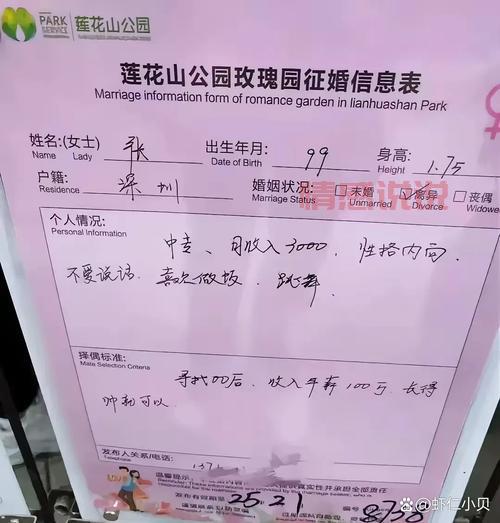 PARK SERVICE 莲花山公园
莲花山公园玫瑰园征婚信息表
Marriage information form of romance garden in lianhuashan Park
姓名:(女士) 张 出生年月: 99 身高: 1.75
Name Lady Date of Birth Height
户籍: 深圳 婚姻状况: 未婚 离异 丧偶
Residence Marriage Status Unmarried Divorce Widowe
个人情况:
Personal Information
中专、月收入3000、性格内向
不爱说话、喜欢做饭、跳舞
择偶标准:
Mate Selection Criteria
寻找00后、收入年薪100万、长得
帅就可以
发布人关系/电话:
Telephone
温馨提示:
2521
8728
@虾仁小贝